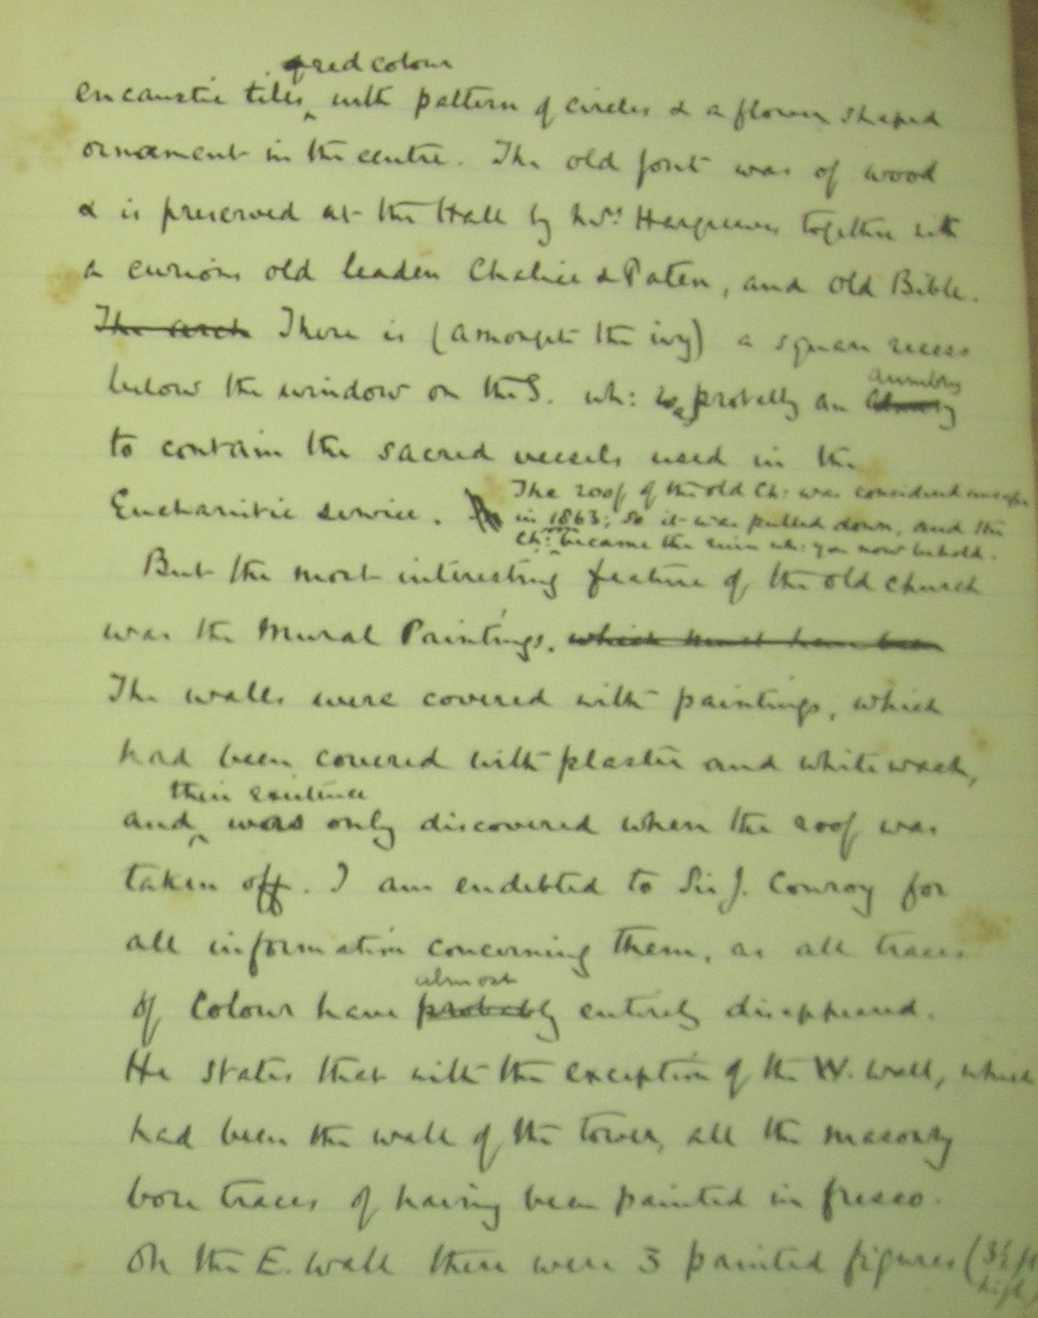 of red colour
encaustic tiles, with pattern of circles & a flower shaped
ornament in the centre. The old font was of wood
& is preserved at the Hall by Mrs. Hargreaves together with
a curious old leaden Chalice & Paten, and old Bible.
The arch There is (amongst the ivy) a square recess
below the window on the S. wh: is probably an
aumbry
to contain the sacred vessels used in the
Eucharistic service.
The roof of the old Ch: was considered unsafe
in 1863; so it was pulled down, and the
Ch: became the ruin wh: you now behold.
But the most interesting feature of the old church
was the Mural Paintings. which must have been
The walls were covered with paintings, which
had been covered with plaster and whitewash,
their existence
and was only discovered when the roof was
taken off. I am endebted to Sir J. Conroy for
all information concerning them, as all traces
almost
of Colour have probably entirely disappeared.
He states that with the exception of the W. wall, which
had been the wall of the tower, all the masonry
bore traces of having been painted in fresco.
On the E. wall there were 3 painted figures (3½ ft
high)